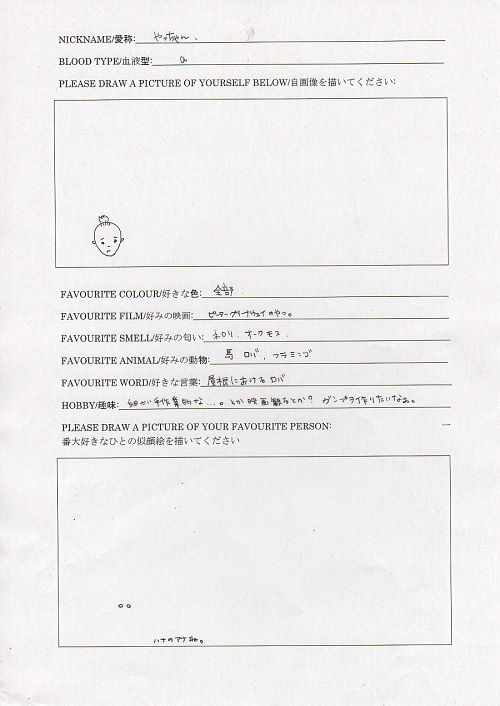 NICKNAME/愛称: やっちゃん.
BLOOD TYPE/血液型: a
PLEASE DRAW A PICTURE OF YOURSELF BELOW/自画像を描いてください:
FAVOURITE COLOUR/好きな色: 全部.
FAVOURITE FILM/好みの映画: ピーターグリーナウェイのやつ。
FAVOURITE SMELL/好みの匂い: ネロリ、オークモス
FAVOURITE ANIMAL/好みの動物: 馬 ロバ、フラミンゴ
FAVOURITE WORD/好きな言葉: 屋根にあけるロバ
HOBBY/趣味: 細かい手作業的な...。とか映画観るとか。ガンプラ作りたいなぁ。
PLEASE DRAW A PICTURE OF YOUR FAVOURITE PERSON:
番大好きなひとの似顔絵を描いてください
ハナのアナ